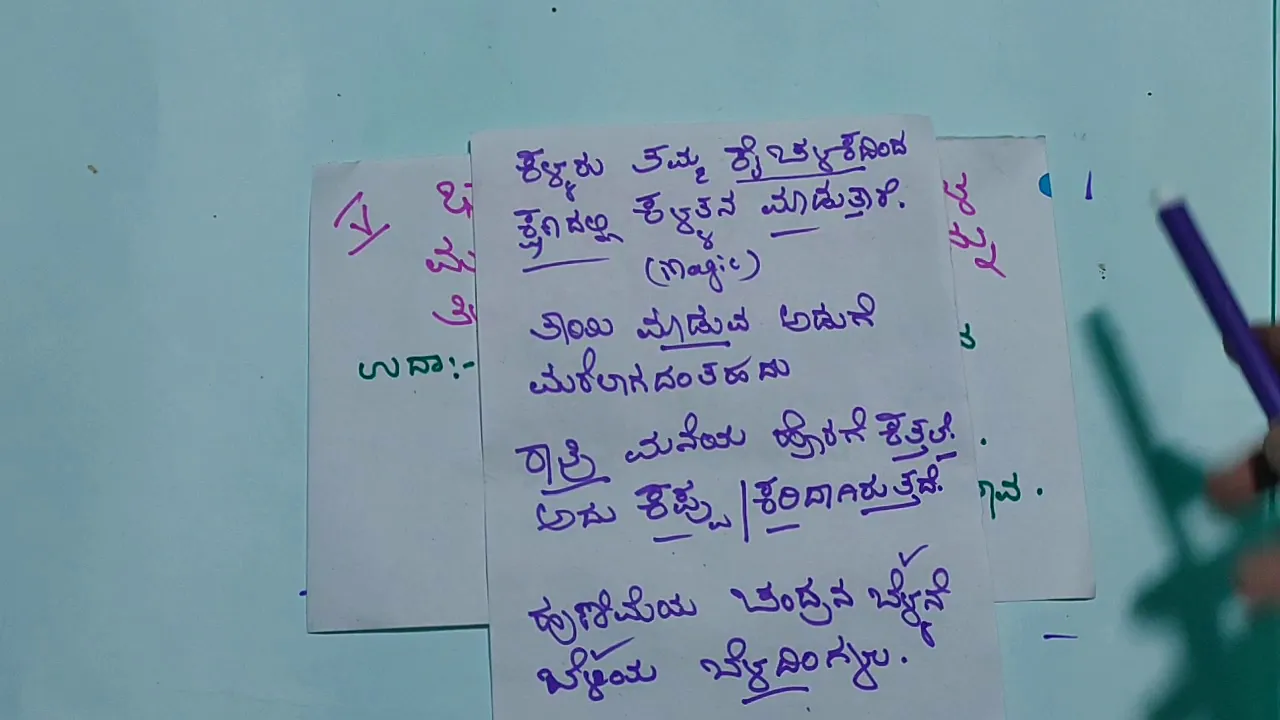 ಕಳ್ಳರು ತಮ್ಮ ಕೈಚಳಕದಿಂದ
ಕ್ಷಣದಲ್ಲಿ ಕಳ್ಳತನ ಮಾಡುತ್ತಾರೆ.
(magic)
ತಾಯಿ ಮಾಡುವ ಅಡುಗೆ
ಉದಾ:-
ಮರೆಲಾಗದಂತಹದು
ರಾತ್ರಿ ಮನೆಯ ಹೊರಗೆ ಕತ್ತಲೆ.
ಅದು ಕಪ್ಪು | ಕರಿದಾಗಿರುತ್ತದೆ.
ಹುಣಿಮೆಯ ಚಂದ್ರನ ಬೆಳ್ಳನೆ
ಬೆಳ್ಳಿಯ ಬೆಳ್ಳದಿಂಗ್ಳು.